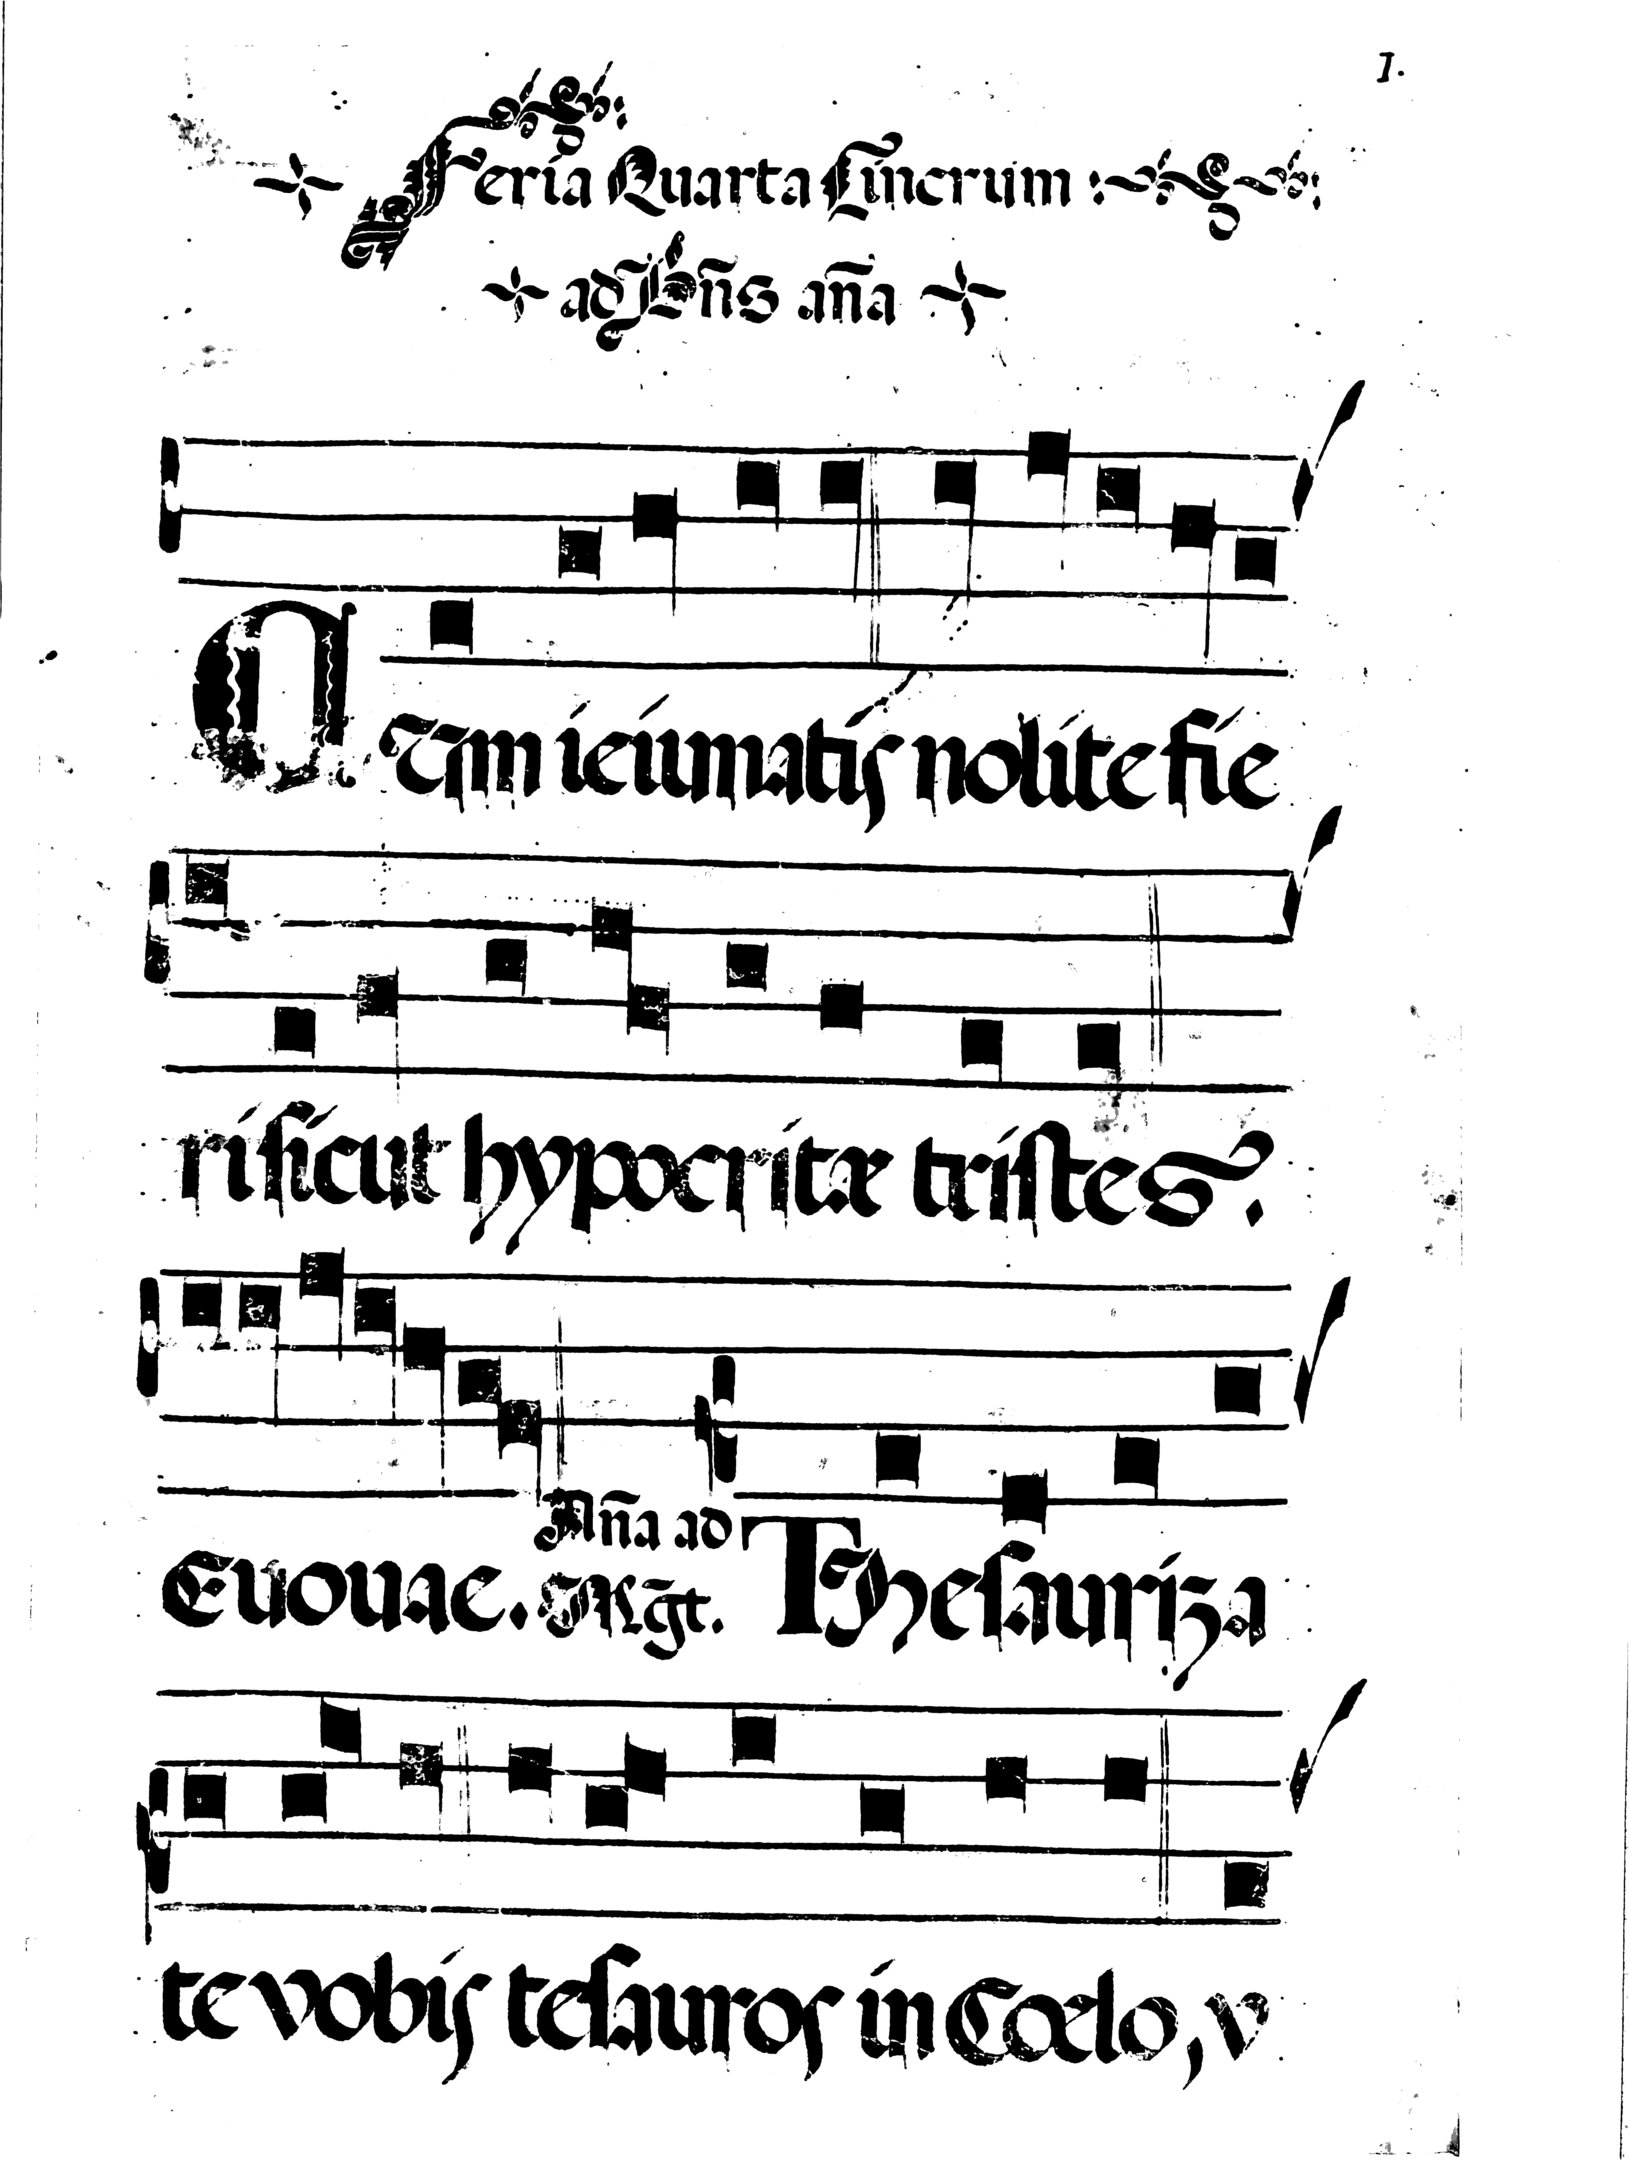 I.
Feria Quarta Cinerum
ad Bñs aña
Cūm ieiunatis nolite fie
ri sicut hypocritæ tristes.
Euouae. Aña ad Mḡt. Thesauriza
te vobis tesauros in Cœlo, v